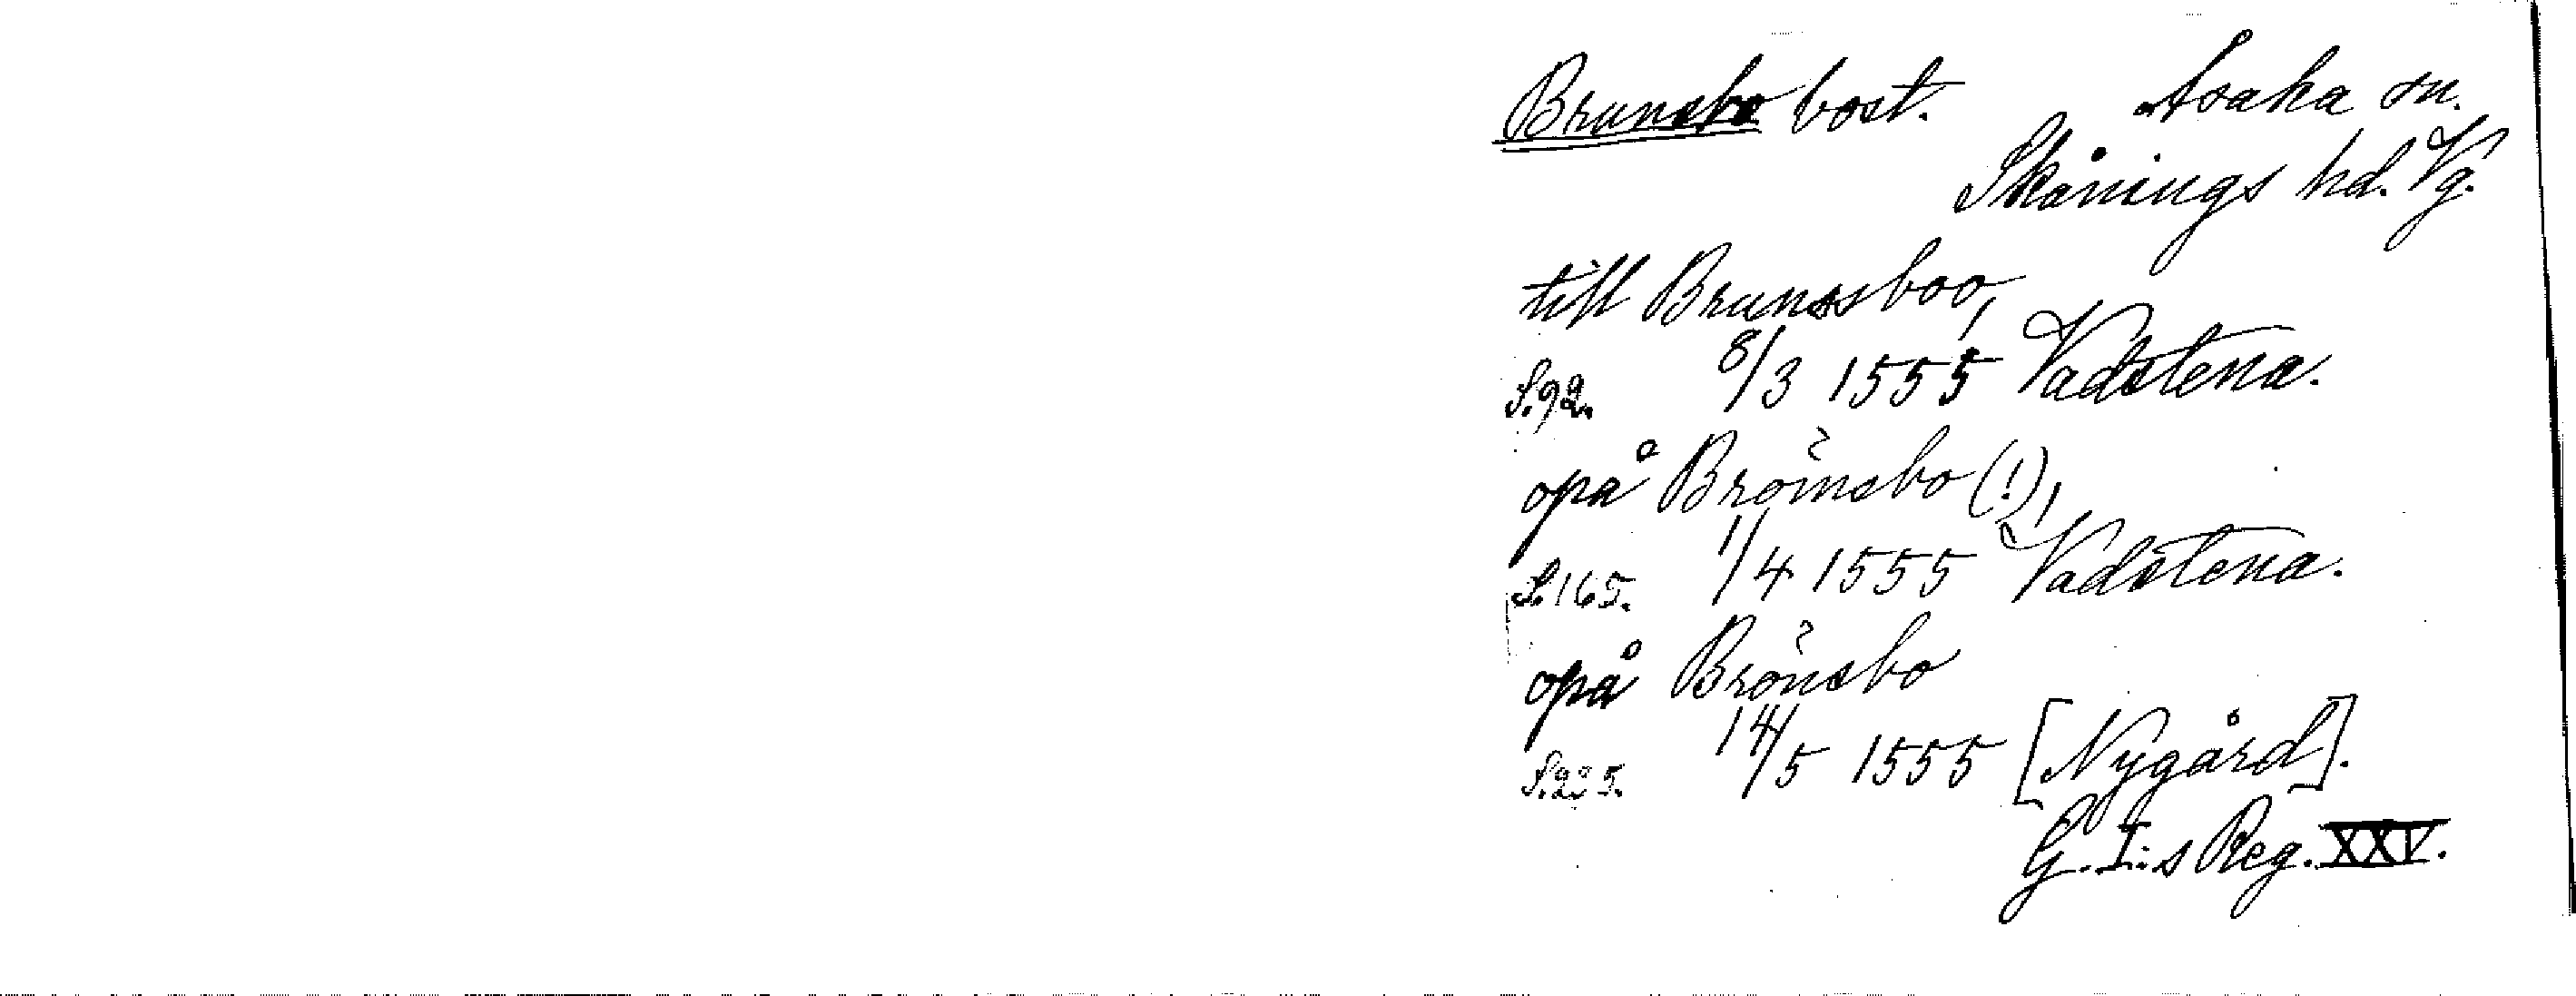 Brunsbo bost. Åsaka sn.
Skånings hd. Vg.
till Brunssboo,
S.92. 8/3 1555 Vadstena.
opå Brömsbo (!),
S.165. 1/4 1555 Vadstena.
opå Brönsbo
S.225. 14/5 1555 [Nygård].
G. I:s Reg. XXV.